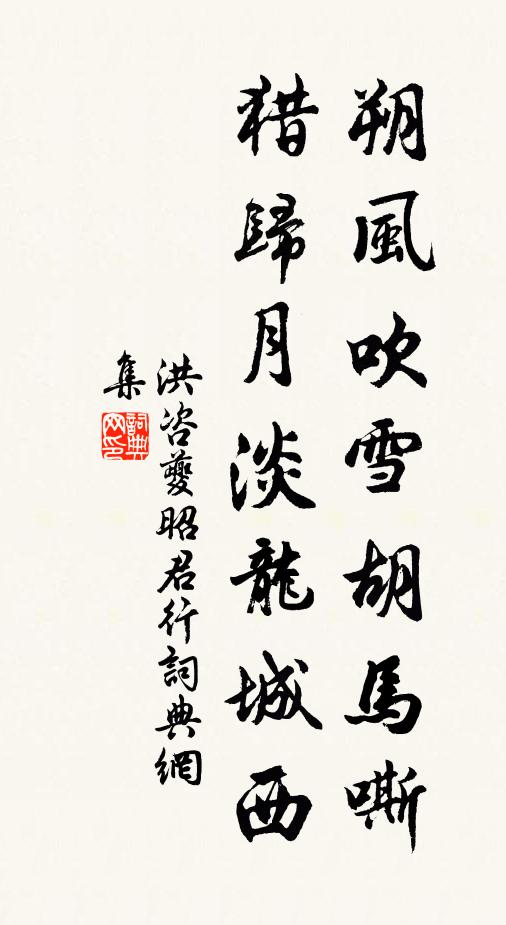 朔風吹雪胡馬嘶
猎歸月淡龍城西
洪咨夔昭君行詞典網
集
詞典网印